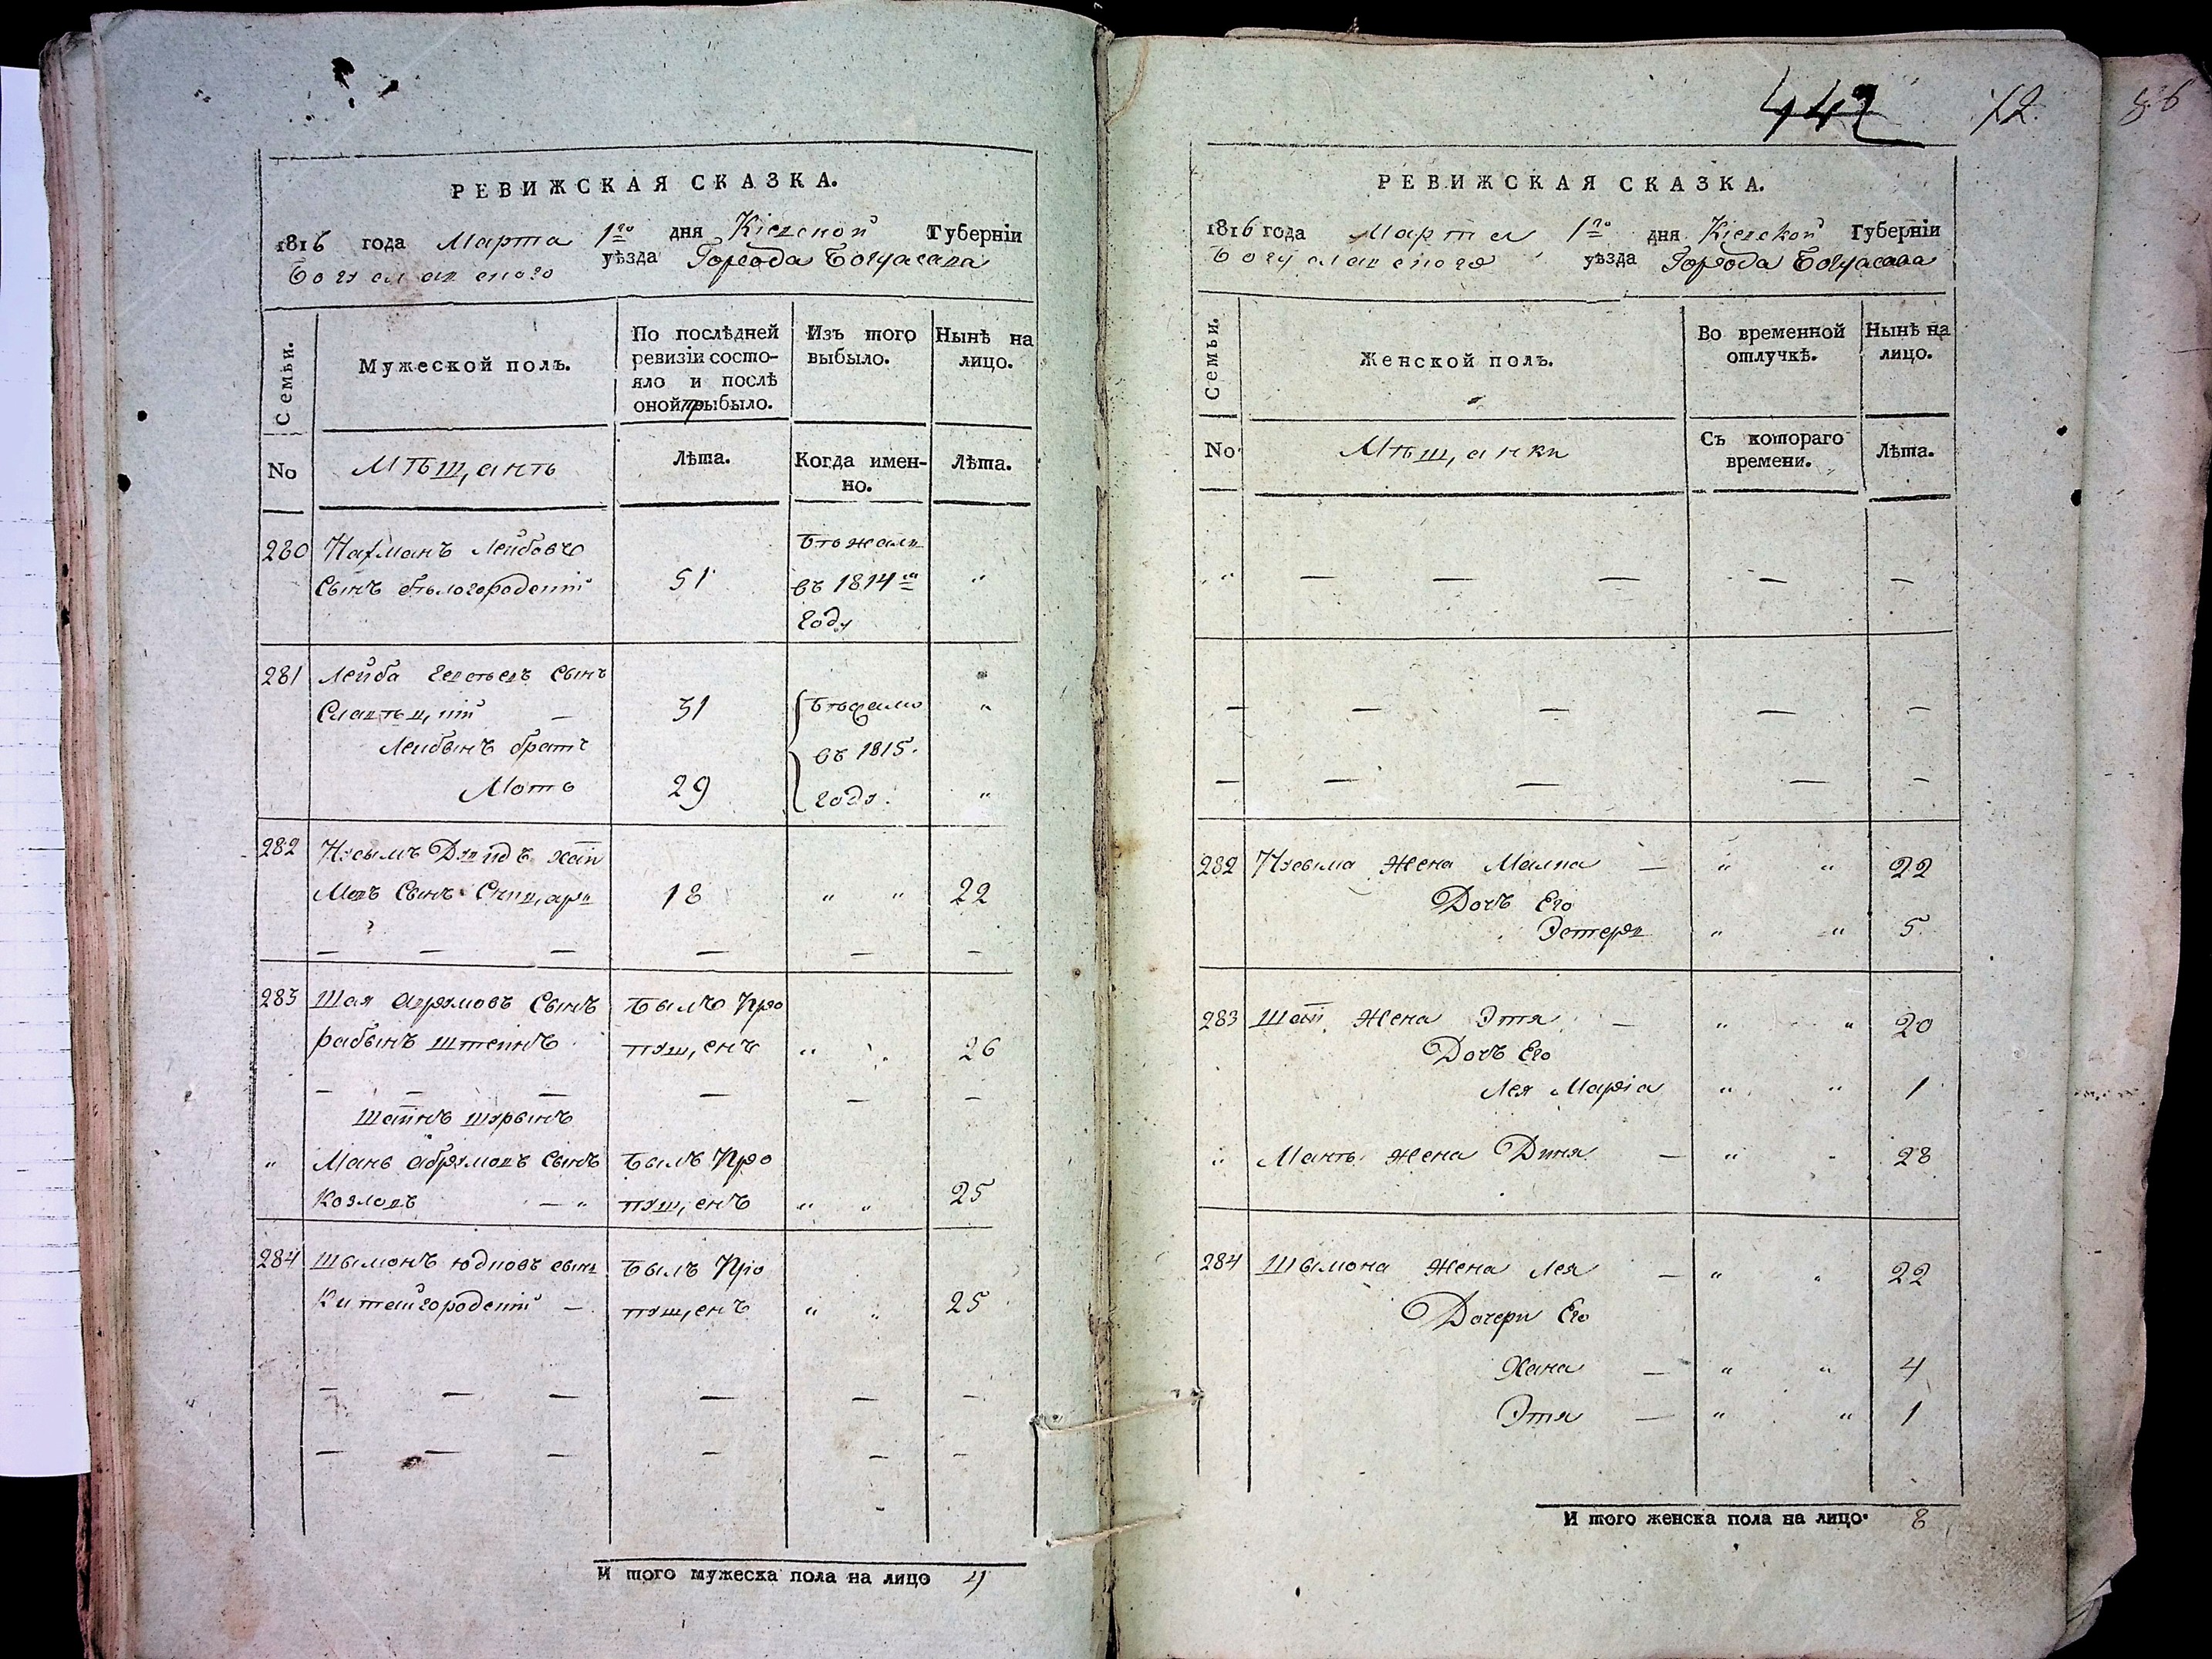 РЕВИЖСКАЯ СКАЗКА.
1816 года Марта 1го дня Кіевской Губерніи
Богуславского уѣзда Города Богуслава
Семьи.
Мужеской полъ.
По послѣдней ревизіи состо-
яло и послѣ
оной прыбыло.
Изъ того
выбыло.
Нынѣ на
лицо.
No
Мѣщанѣ
Лѣта.
Когда имен-
но.
Лѣта.
280 Нахманъ Лейбовъ
Сынъ бѣлогородскій 51 " 
Бѣжалъ
въ 1814м
году
281 Лейба Сынъ
31 "
Лейбынъ братъ
въ 1815.
Моть 29 "
году.
282 Нусымъ Давидъ хаи
мовъ Сынъ 18 " " 22
— — — — — —
283 Шая аврумовъ Сынъ Былъ Про
рабынъ штеинъ пущенъ " " 26
— — — — — —
Шаинъ шурынъ
" Мань абрумовъ Сынъ Былъ Про
Козловъ — " пущенъ " " 25
284 Шымонъ юдковъ сынъ Былъ Про
Китайгородскій — пущенъ " " 25
— — — — — —
— — — — — —
И того мужеска пола на лицо 4
442 72.
86
РЕВИЖСКАЯ СКАЗКА.
1816 года Марта 1го дня Кіевской Губерніи
Богуславского уѣзда Города Богуслава
Семьи.
Женской полъ.
Во временной
отлучкѣ.
Нынѣ на
лицо.
No
Мѣщанки
Съ котораго
времени.
Лѣта.
" — — — — —
— — — — —
— — — — —
282 Нусыма Жена Малка — " " 22
Дочъ Его
Эстеръ " " 5
283 Шаи Жена Этя — " " 20
Дочъ Его
Лея Маріа " " 1
" Манѣ Жена Диня — " " 28
284 Шымона Жена Лея — " " 22
Дочери Его
Хана — " " 4
Этя — " " 1
И того женска пола на лицо. 8